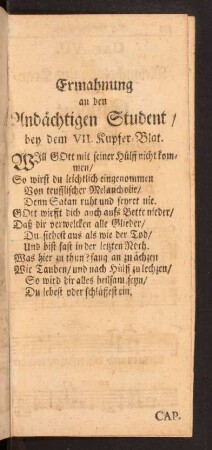 Ermahnung
an den
Andächtigen Student /
bey dem VII. Kupffer-Blat.
WIll GOtt mit seiner Hülff nicht kom-
men/
So wirst du leichtlich eingenommen
Von teufflischer Melancholie/
Denn Satan ruht und feyret nie.
GOtt wirfft dich auch auffs Bette nieder/
Daß dir verwelcken alle Glieder/
Du siehest aus als wie der Tod/
Und bist fast in der letzten Noth.
Was hier zu thun? fang an zu ächzen
Wie Tauben/ und nach Hülff zu lechzen/
So wird dir alles heilsam seyn/
Du lebest oder schläffest ein.
CAP.